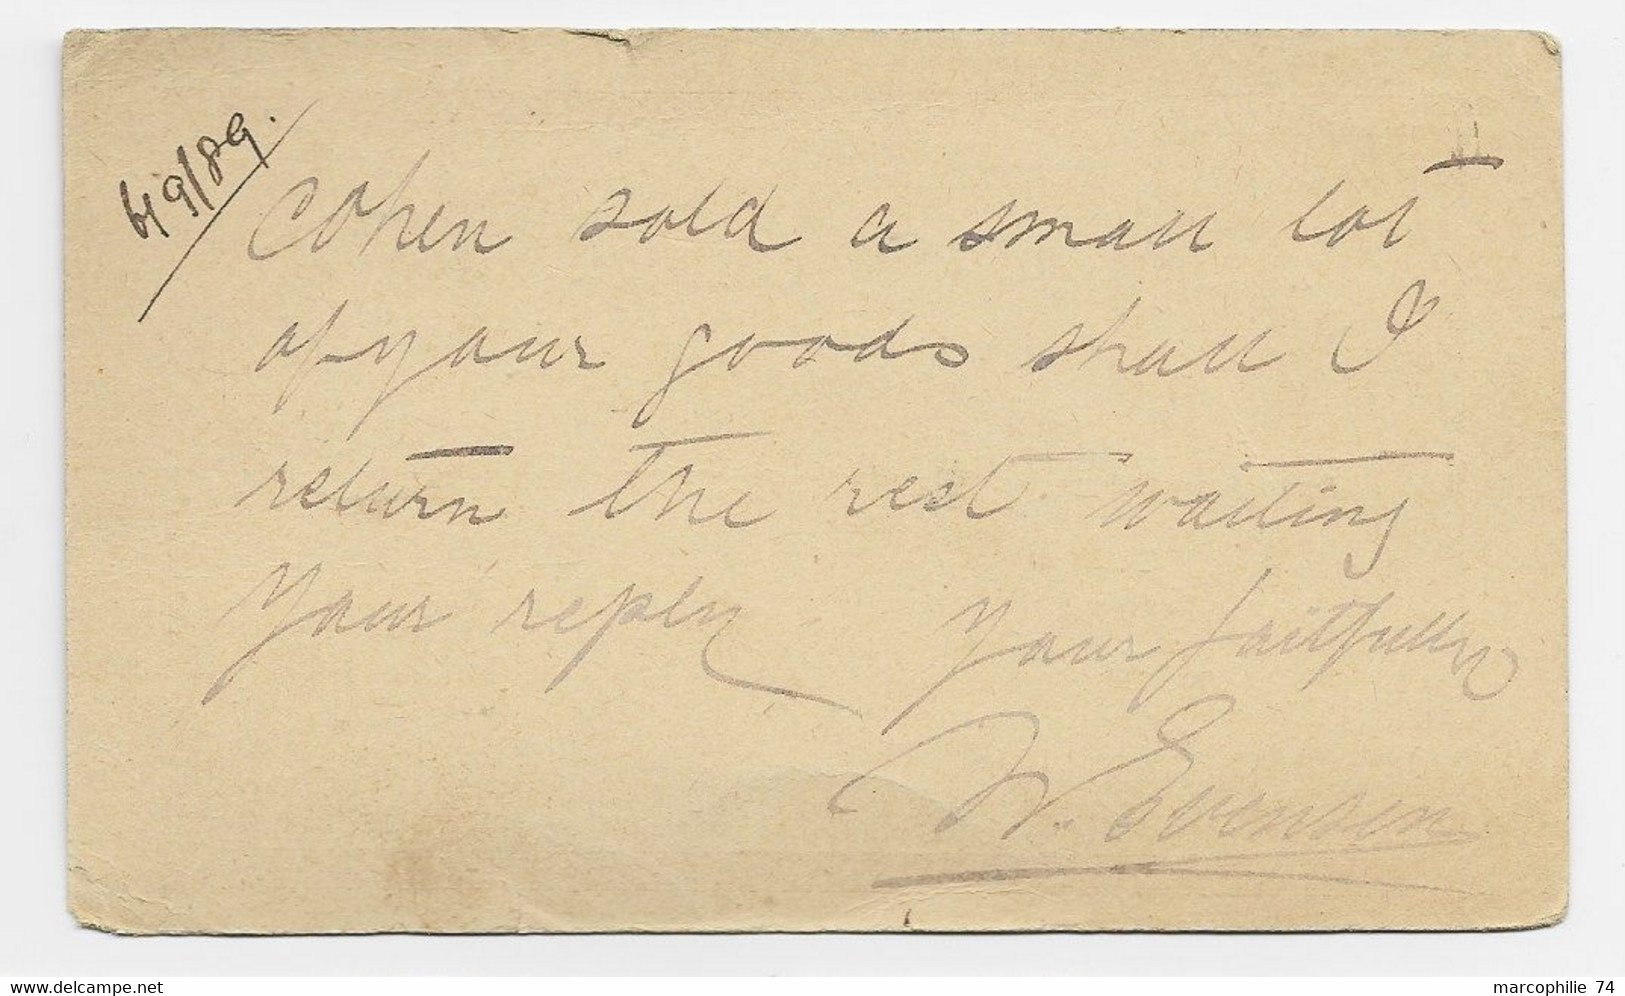 4/9/89.
Cohen sold a small lot
of your goods shall I
return the rest waiting
your reply your faitfully
W. Evensen
delcampe.net
marcophilie 74